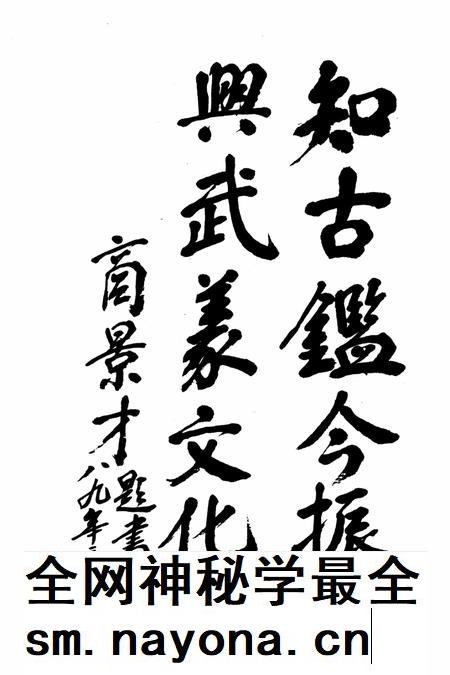 知古鑑今振
興武義文化
商景才
題書
八九年
全网神秘学最全
sm.nayona.cn